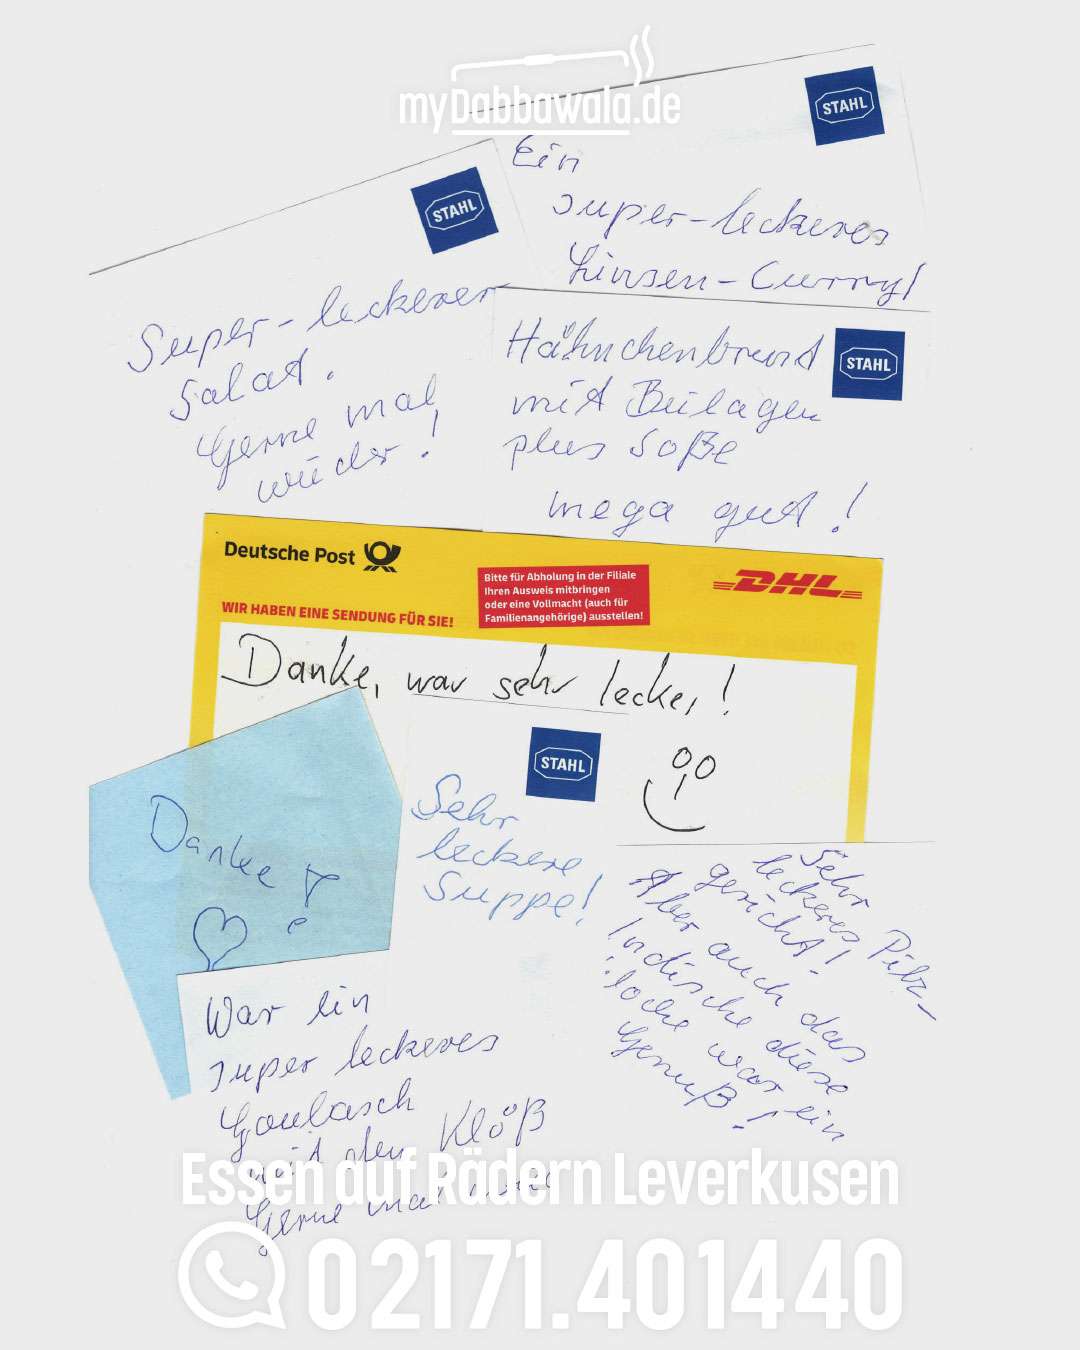 myDabbawala.de
STAHL
Ein
super-leckeres
Linsen-Curry!
STAHL
Super-leckerer
Salat.
Gerne mal
wieder!
STAHL
Hähnchenbrust
mit Beilagen
plus Soße
mega gut!
Deutsche Post
DHL
Bitte für Abholung in der Filiale
Ihren Ausweis mitbringen
oder eine Vollmacht (auch für
Familienangehörige) ausstellen!
WIR HABEN EINE SENDUNG FÜR SIE!
Danke, war sehr lecker!
Danke!
STAHL
Sehr
leckere
Suppe!
Sehr
leckeres Pilz-
gericht!
Aber auch das
Indische diese
Woche war ein
Genuß!
War ein
super leckeres
Goulasch
mit den Klöß
Gerne mal
Essen auf Rädern Leverkusen
02171.401440